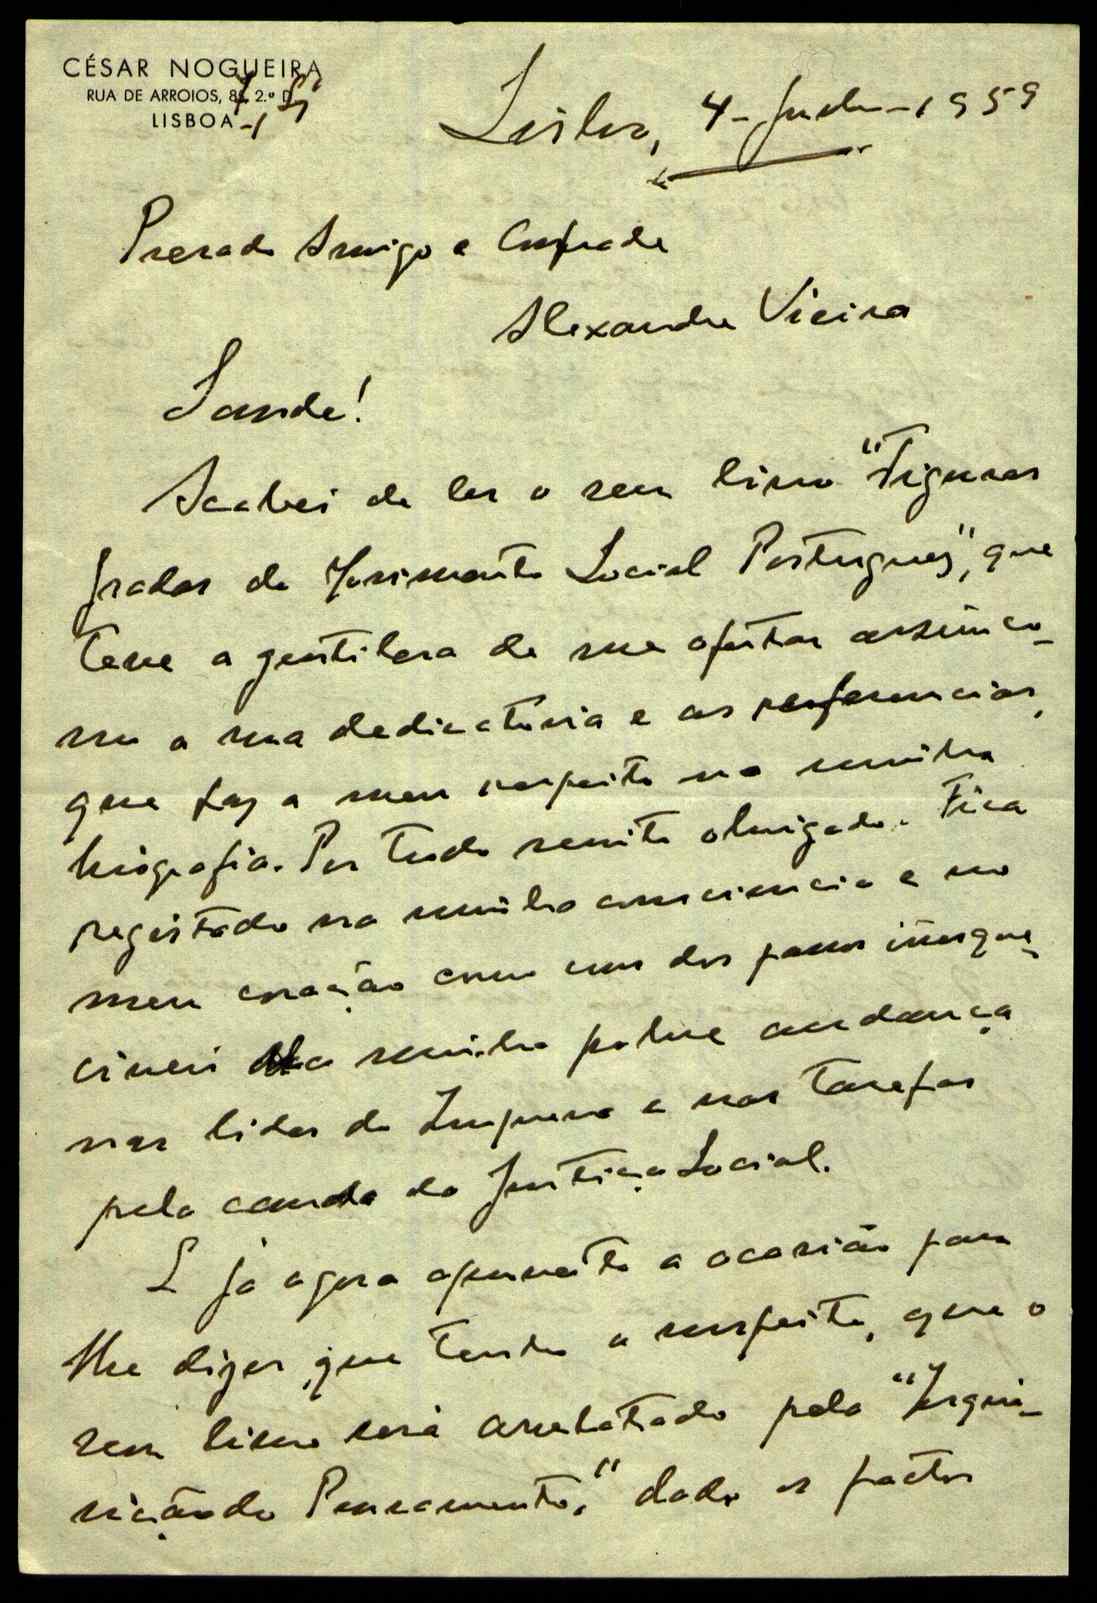 CÉSAR NOGUEIRA
RUA DE ARROIOS, 2.º D
LISBOA-1
Lisboa, 4-Junho-1959
Prezado Amigo e Confrade
Alexandre Vieira
Saude!
Acabei de ler o seu livro "Figuras
gradas do Movimento Social Português", que
teve a gentileza de me ofertar assim co-
mo a sua dedicatoria e as referencias,
que faz a meu respeito na minha
biografia. Por tudo muito obrigado. Fica
registado na minha consciencia e no
meu coração como um dos passos inesque-
civeis da minha pobre andança
nas lides da Imprensa e nas tarefas
pela causa da Justiça Social.
E já agora aproveito a ocasião para
lhe dizer, que tenho a suspeita, que o
seu livro será arrebatado pela "Inqui-
sição do Pensamento," dado os factos